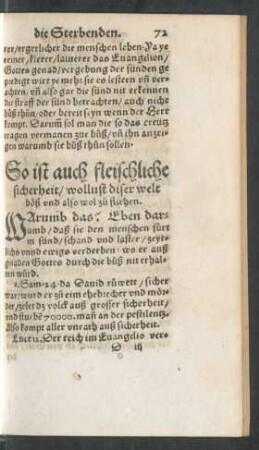 die Sterbenden. 72
rer/ergerlicher die menschen leben. Ja ye
reiner/klerer/lauterer das Euangelion/
Gottes genad/vergebung der sünden ge
prediget wirt ye mehr sie es lestern vñ ver-
achten/vñ also gar die sünd nit erkennen
die straff der sünd betrachten/auch nicht
büß thůn/oder bereit seyn wenn der Herr
kompt. Darum̃ sol man die so das creütz
tragen vermanen zur büß/vñ ihn anzei-
gen warumb sie büß thůn sollen.
So ist auch fleischliche
sicherheit/wollust diser welt
böß vnd also wol zů fliehen.
WArumb das? Eben dar-
umb/daß sie den menschen fürt
in sünd/schand vnd laster/zeyt-
lichs vnnd ewigs verderben/wo er auß
gnaden Gottes durch die büß nit erhal-
ten würd.
2. Sam. 24. da Dauid rüwett/sicher
war/ward er zů eim ehebrecher vnd mör-
der/zelet dz volck auß grosser sicherheit/
vnd sturbẽ 70000. mañ an der pestilentz.
Also kompt aller vnrath auß sicherheit.
Luce 12. Der reich im Euangelio ver-
D iij